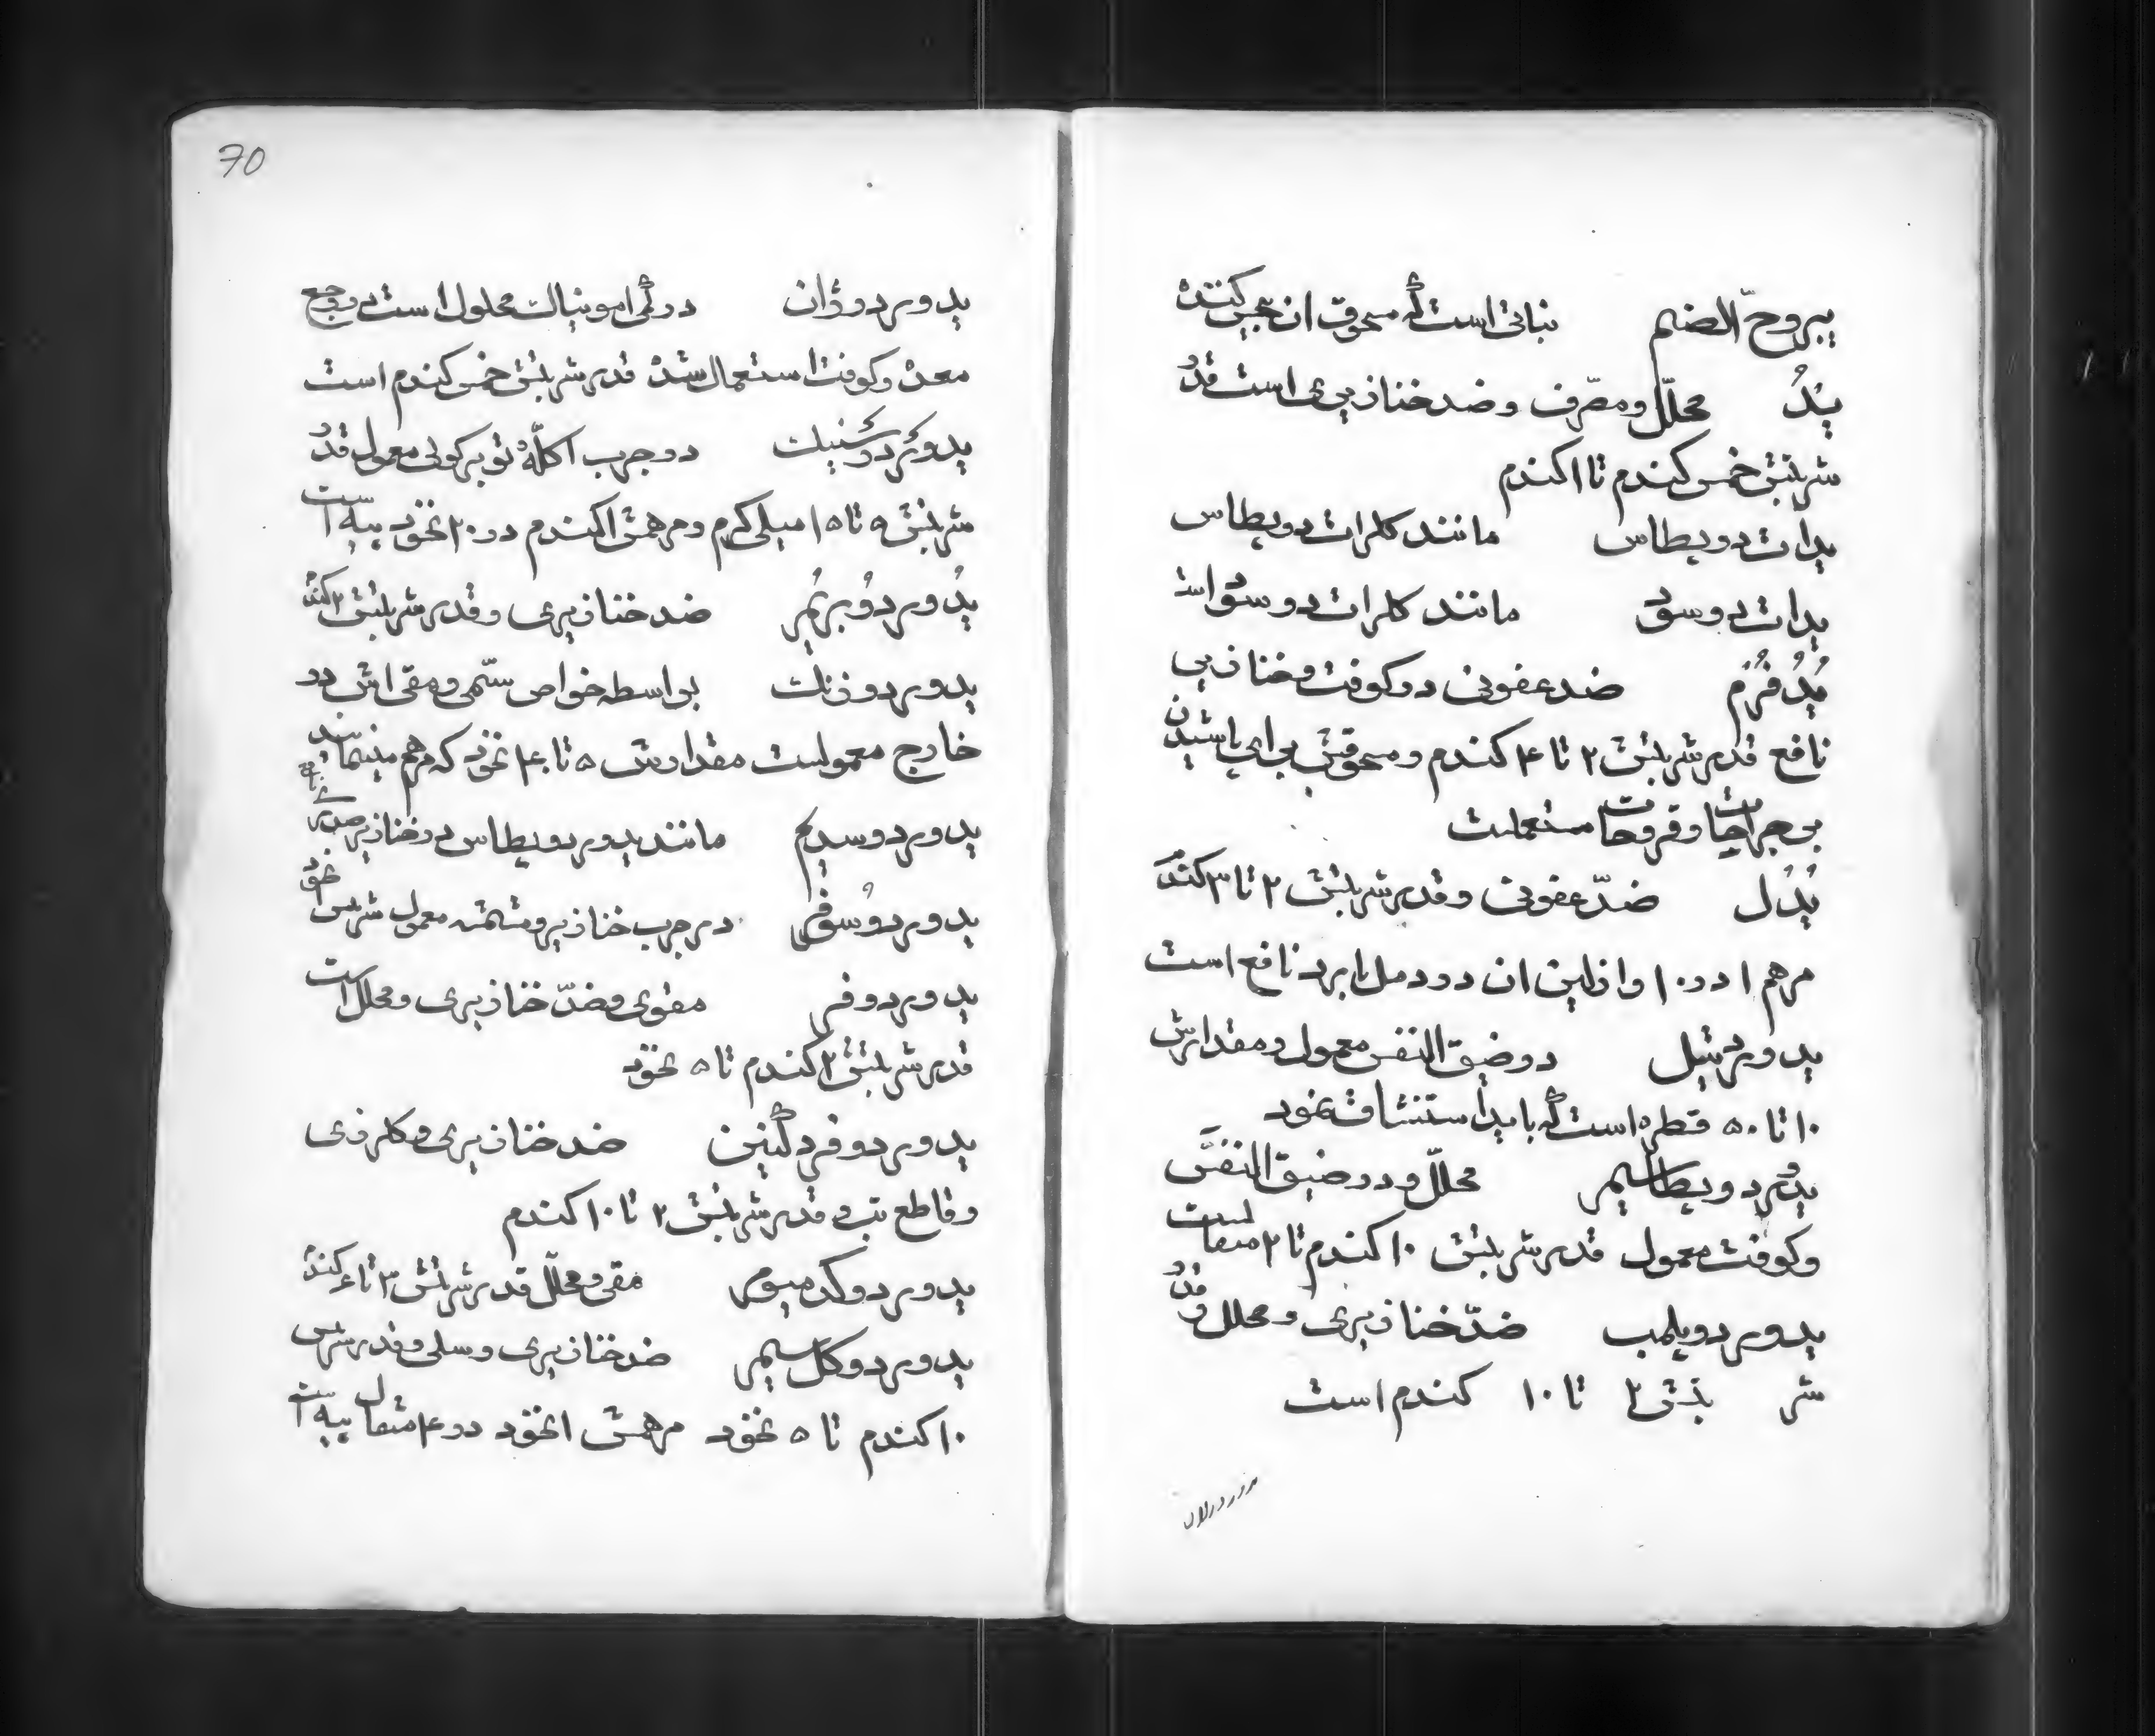 یبروح الصنم نباتی است که مسحوق ان بیحس کننده
یُدُ محلّل و مصرّف و ضد خنازیری است قدر
شربتش خمس کندم تا ۱ کندم
یدات دو پطاس مانند کلرات دو پطاس
یدات دو سود مانند کلرات دو سود است
یُدُفُرُم ضد عفونی در کوفت و خنازیر
نافع قدر شربتش ۲ تا ۴ کندم و مسحوقش برای پاشیدن
بر جراحات و قروحات مستعملست
یُدُل ضدّ عفونی و قدر شربتش ۲ تا ۳ کندم
مرهم ۱ در ۱۰ وازلین ان در دمل نافع است
یدور دتیل در ضیق النفس معمول و مقدارش
۱۰ تا ۵۰ قطره است که باید استنشاق نمود
یدور دو پطاسیم محلّل و در ضیق النفس
و کوفت معمول قدر شربتش ۱۰ کندم تا ۲ مثقالست
یدور دو پلمب ضدّ خنازیری و محلل و قدر
شربتش ۲ تا ۱۰ کندم است
70
یدور دو ژان در محلول است در وجع
معده و کوفت استعمال شده قدر شربتش خمس کندم است
یدور در جرب اکله معمول قدر
شربتش ۵ تا ۱۵ میلی کرم و مرهمش ۱ کندم در ۲۰ نخود پیه است
یُدور دُو بریُم ضد خنازیری و قدر شربتش ۲ کندم
یدور دو زنک بواسطه خواص سمّی و مقی اش در
خارج معمولست مقدارش ۵ تا ۴۰ نخود که مرهم مینمایند
یدور دو سدیم مانند یدور دو پطاس در خنازیر
یدور دو سوفر در جرب خنازیر معمول شربتش ۱ نخود
یدور دو فر مقوی و ضدّ خنازیری و محلل است
قدر شربتش ۲ کندم تا ۵ نخود
یدور دو فر دکنین ضد خنازیری و کلرزی
و قاطع تب و قدر شربتش ۲ تا ۱۰ کندم
یدور دو کدمیوم مقی و محلّل قدر شربتش ۳ تا ۶ کندم
یدور دو کلسیم ضد خنازیری و سلی و قدر شربتش
۱۰ کندم تا ۵ نخود مرهمش ۱ نخود در ۴ مثقال پیه است